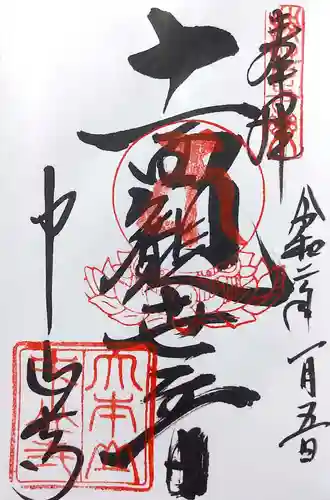 奉拝
令和二年
一月五日
十一面観世音
中山寺
大本山
中山寺